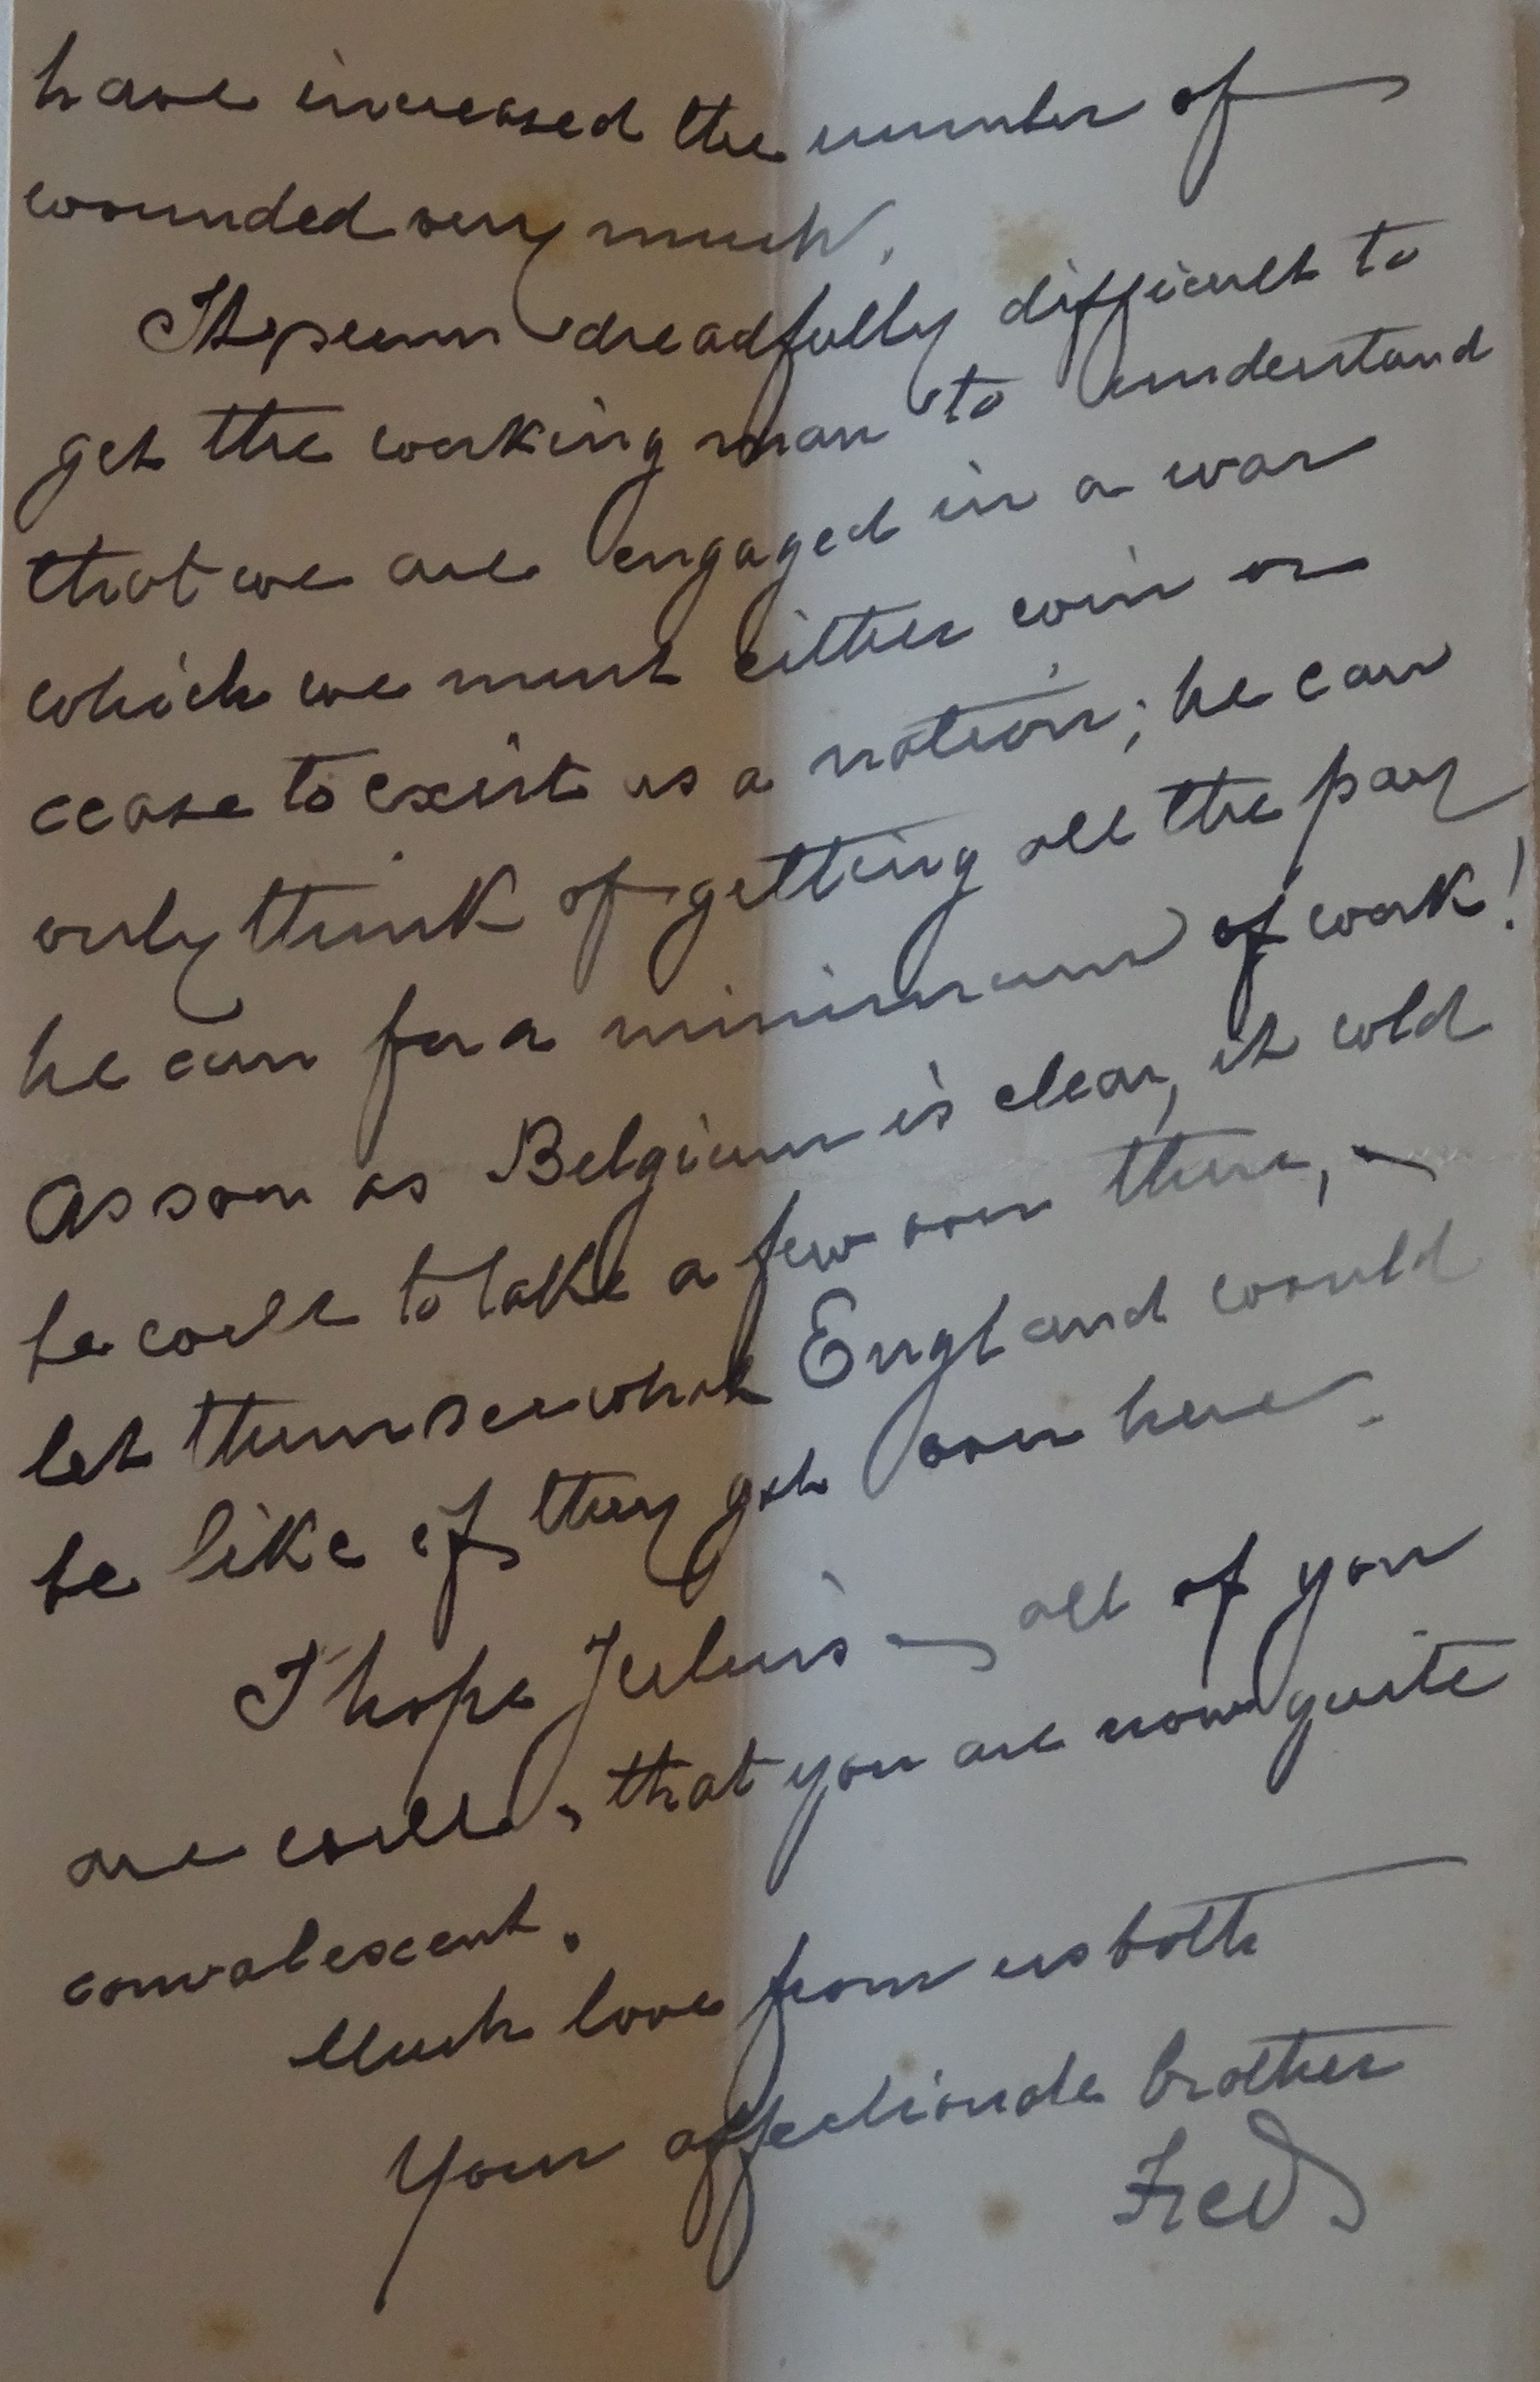 have increased the number of
wounded very much.
It seems dreadfully difficult to
get the working man to understand
that we are engaged in a war
which we must either win or
cease to exist as a nation; he can
only think of getting all the pay
he can for a minimum of work!
As soon as Belgium is clear, it wld
be well to take a few over there, &
let them see what England would
be like if they got over here.
I hope & all of you
are well, & that you are now quite
convalescent.
Much love from us both
Your affectionate brother
Fred